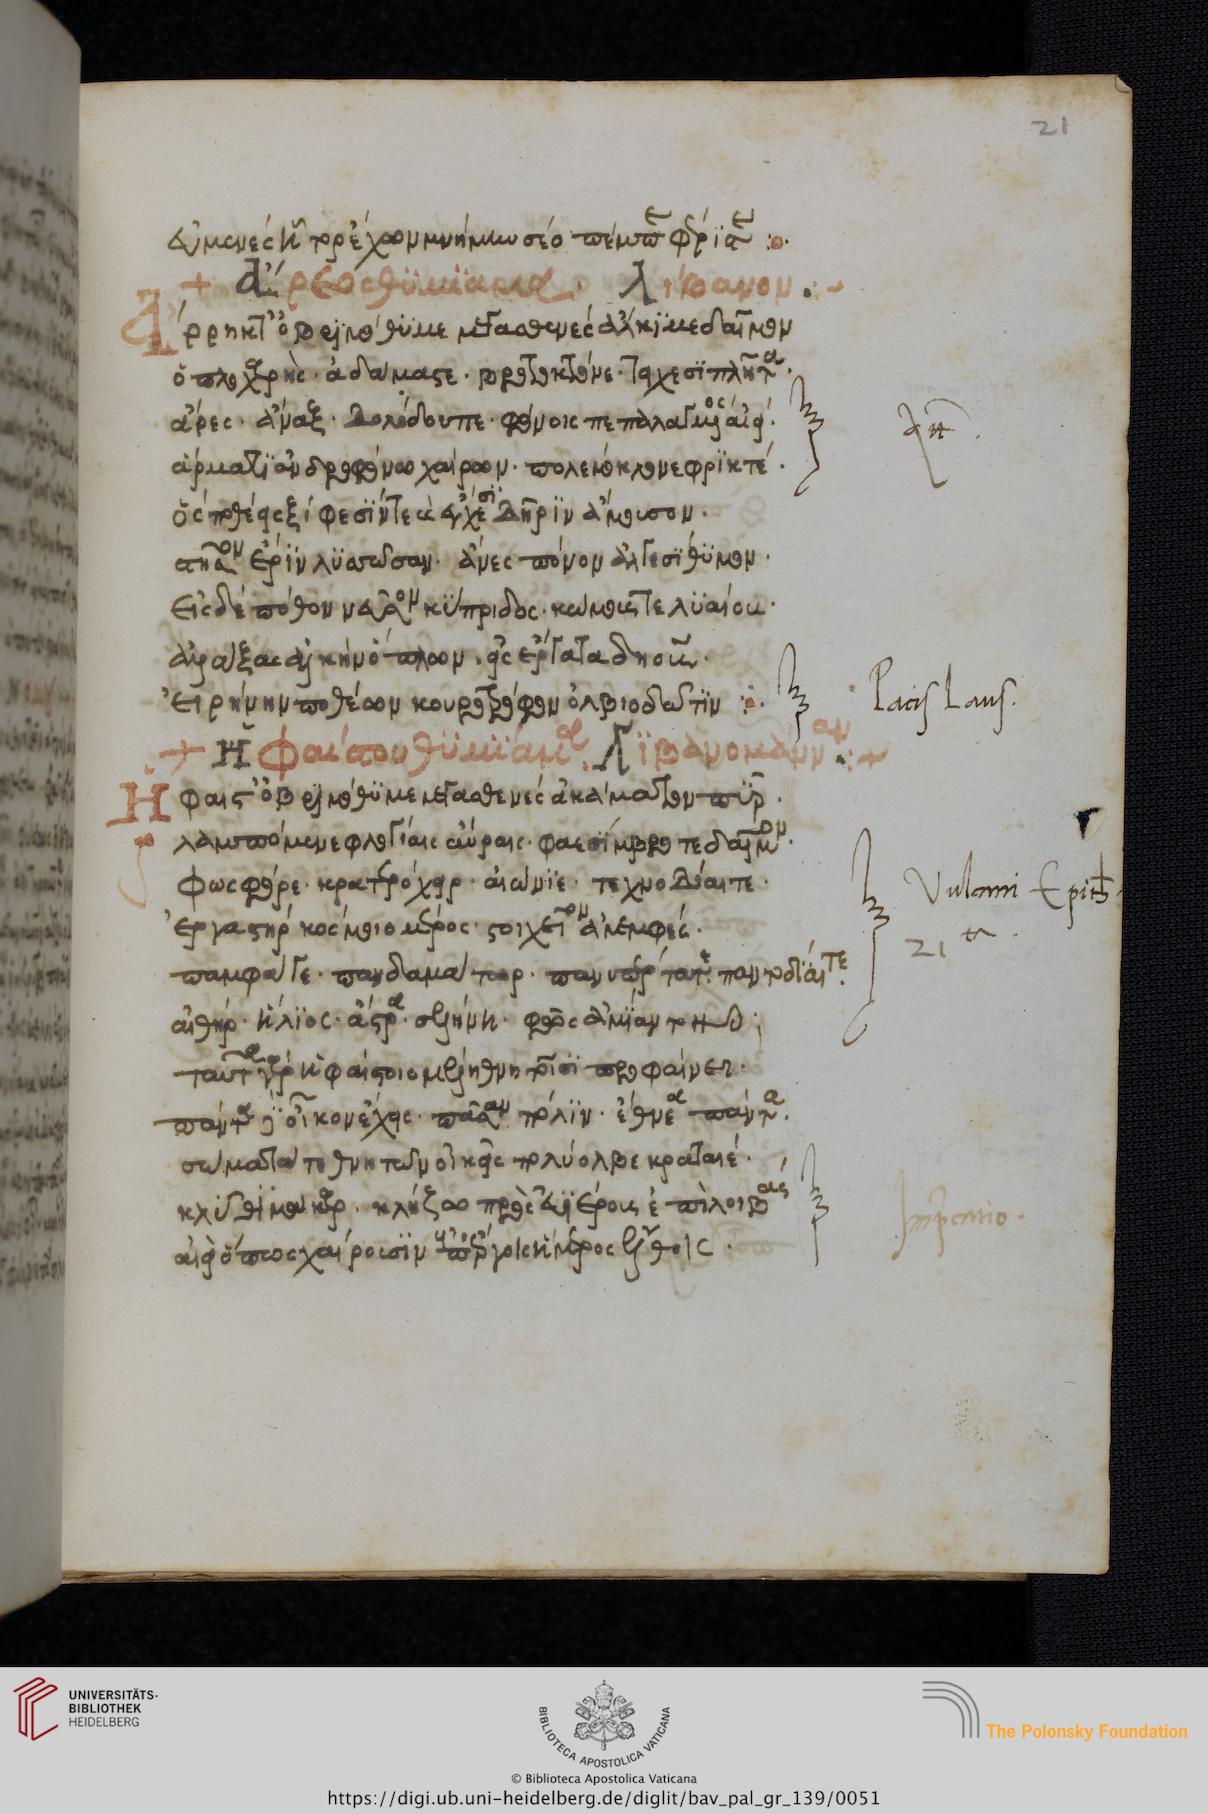 21
εὐμενὲς ἦτορ ἔχων μνήμην σέο πέμπε
+ Ἄρεος θυμίαμα. Λίβανον.
Ἄρρηκτ' ὀβριμόθυμε μεγασθενὲς ἄλκιμε δαῖμον
ὁπλοχαρής· ἀδάμαστε· βροτοκτόνε· τειχεσιπλῆτα·
ἆρες· ἄναξ· δολόδουπε· φόνοις πεπαλαγμένος αἰεί·
αἵματι ἀνδροφόνω χαίρων· πολεμόκλονε φρικτέ·
ὃς ποθέεις ξίφεσίν τε καὶ ἔγχεσι δῆριν ἄμουσον·
στῆσον ἔριν λυσσῶσαν· ἄνες πόνον ἀλγεσίθυμον·
εἰς δὲ πόθον νεῦσον κύπριδος· κώμους τε λυαίου·
ἀλλάξας ἀλκὴν ὅπλων, εἰς ἔργα τὰ δηοῦς·
εἰρήνην ποθέων κουροτρόφον ὀλβιοδῶτιν
Pacis Laus.
+ Ἡφαίστου θυμίαμα. Λιβανομάνναν
Ἥφαιστ' ὀβριμόθυμε μεγασθενὲς ἀκάματον πῦρ·
λαμπόμενε φλογέαις αὐραῖς· φαεσίμβροτε δαῖμον·
φωσφόρε· καρτερόχειρ· αἰώνιε· τεχνοδίαιτε·
Vulcani Epith
21
ἐργαστὴρ κόσμοιο μέρος· στοιχεῖον ἀμεμφές·
παμφάγε· πανδαμάτωρ· πανυπέρτατε· παντοδίαιτε·
αἰθὴρ· ἥλιος· ἄστρα· σελήνη· φῶς ἀμίαντον
ταῦτα γὰρ ἡφαίστοιο μέλη θνητοῖσι προφαίνει·
πάντα δὲ οἶκον ἔχεις· πᾶσαν πόλιν· ἔθνεα πάντα·
σώματά τε θνητῶν οἰκεῖς πολύολβε κραταιέ·
κλῦθι μάκαρ· κλήζω πρὸς εὐιέρους ἐπιλοιβάς
αἰεὶ ὅπως χαίρουσιν ἐπ' ἔργοις ἥμερος ἔλθοις·
UNIVERSITÄTS-
BIBLIOTHEK
HEIDELBERG
BIBLIOTECA APOSTOLICA VATICANA
The Polonsky Foundation
© Biblioteca Apostolica Vaticana
https://digi.ub.uni-heidelberg.de/diglit/bav_pal_gr_139/0051